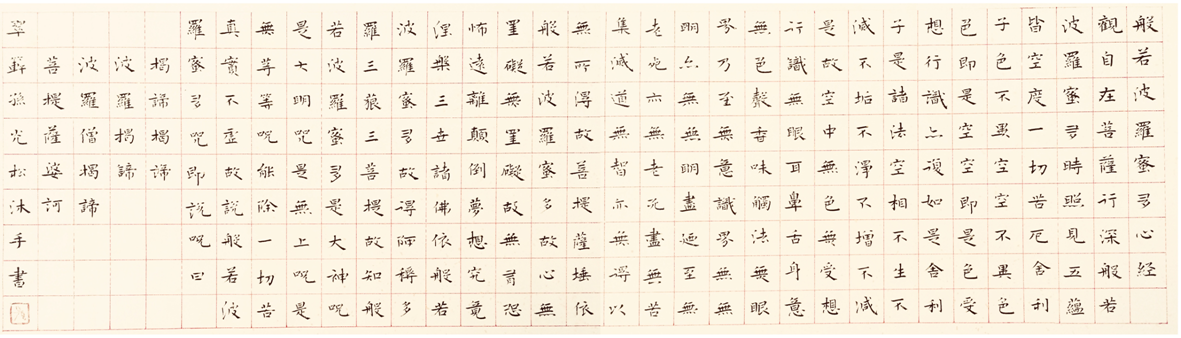 般若波羅蜜多心経
觀自在菩薩行深般若
波羅蜜多時照見五蘊
皆空度一切苦厄舍利
子色不異空空不異色
色即是空空即是色受
想行識亦復如是舍利
子是諸法空相不生不
滅不垢不淨不增不減
是故空中無色無受想
行識無眼耳鼻舌身意
無色聲香味觸法無眼
界乃至無意識界無無
明亦無無明盡迺至無
老死亦無老死盡無苦
集滅道無智亦無得以
無所得故菩提薩埵依
般若波羅蜜多故心無
罣礙無罣礙故無有恐
怖遠離顛倒夢想究竟
涅槃三世諸佛依般若
波羅蜜多故得阿耨多
羅三藐三菩提故知般
若波羅蜜多是大神咒
是大明咒是無上咒是
無等等咒能除一切苦
真實不虛故說般若波
羅蜜多咒即說咒曰
揭諦揭諦
波羅揭諦
波羅僧揭諦
菩提薩婆訶
翠光松沐手書